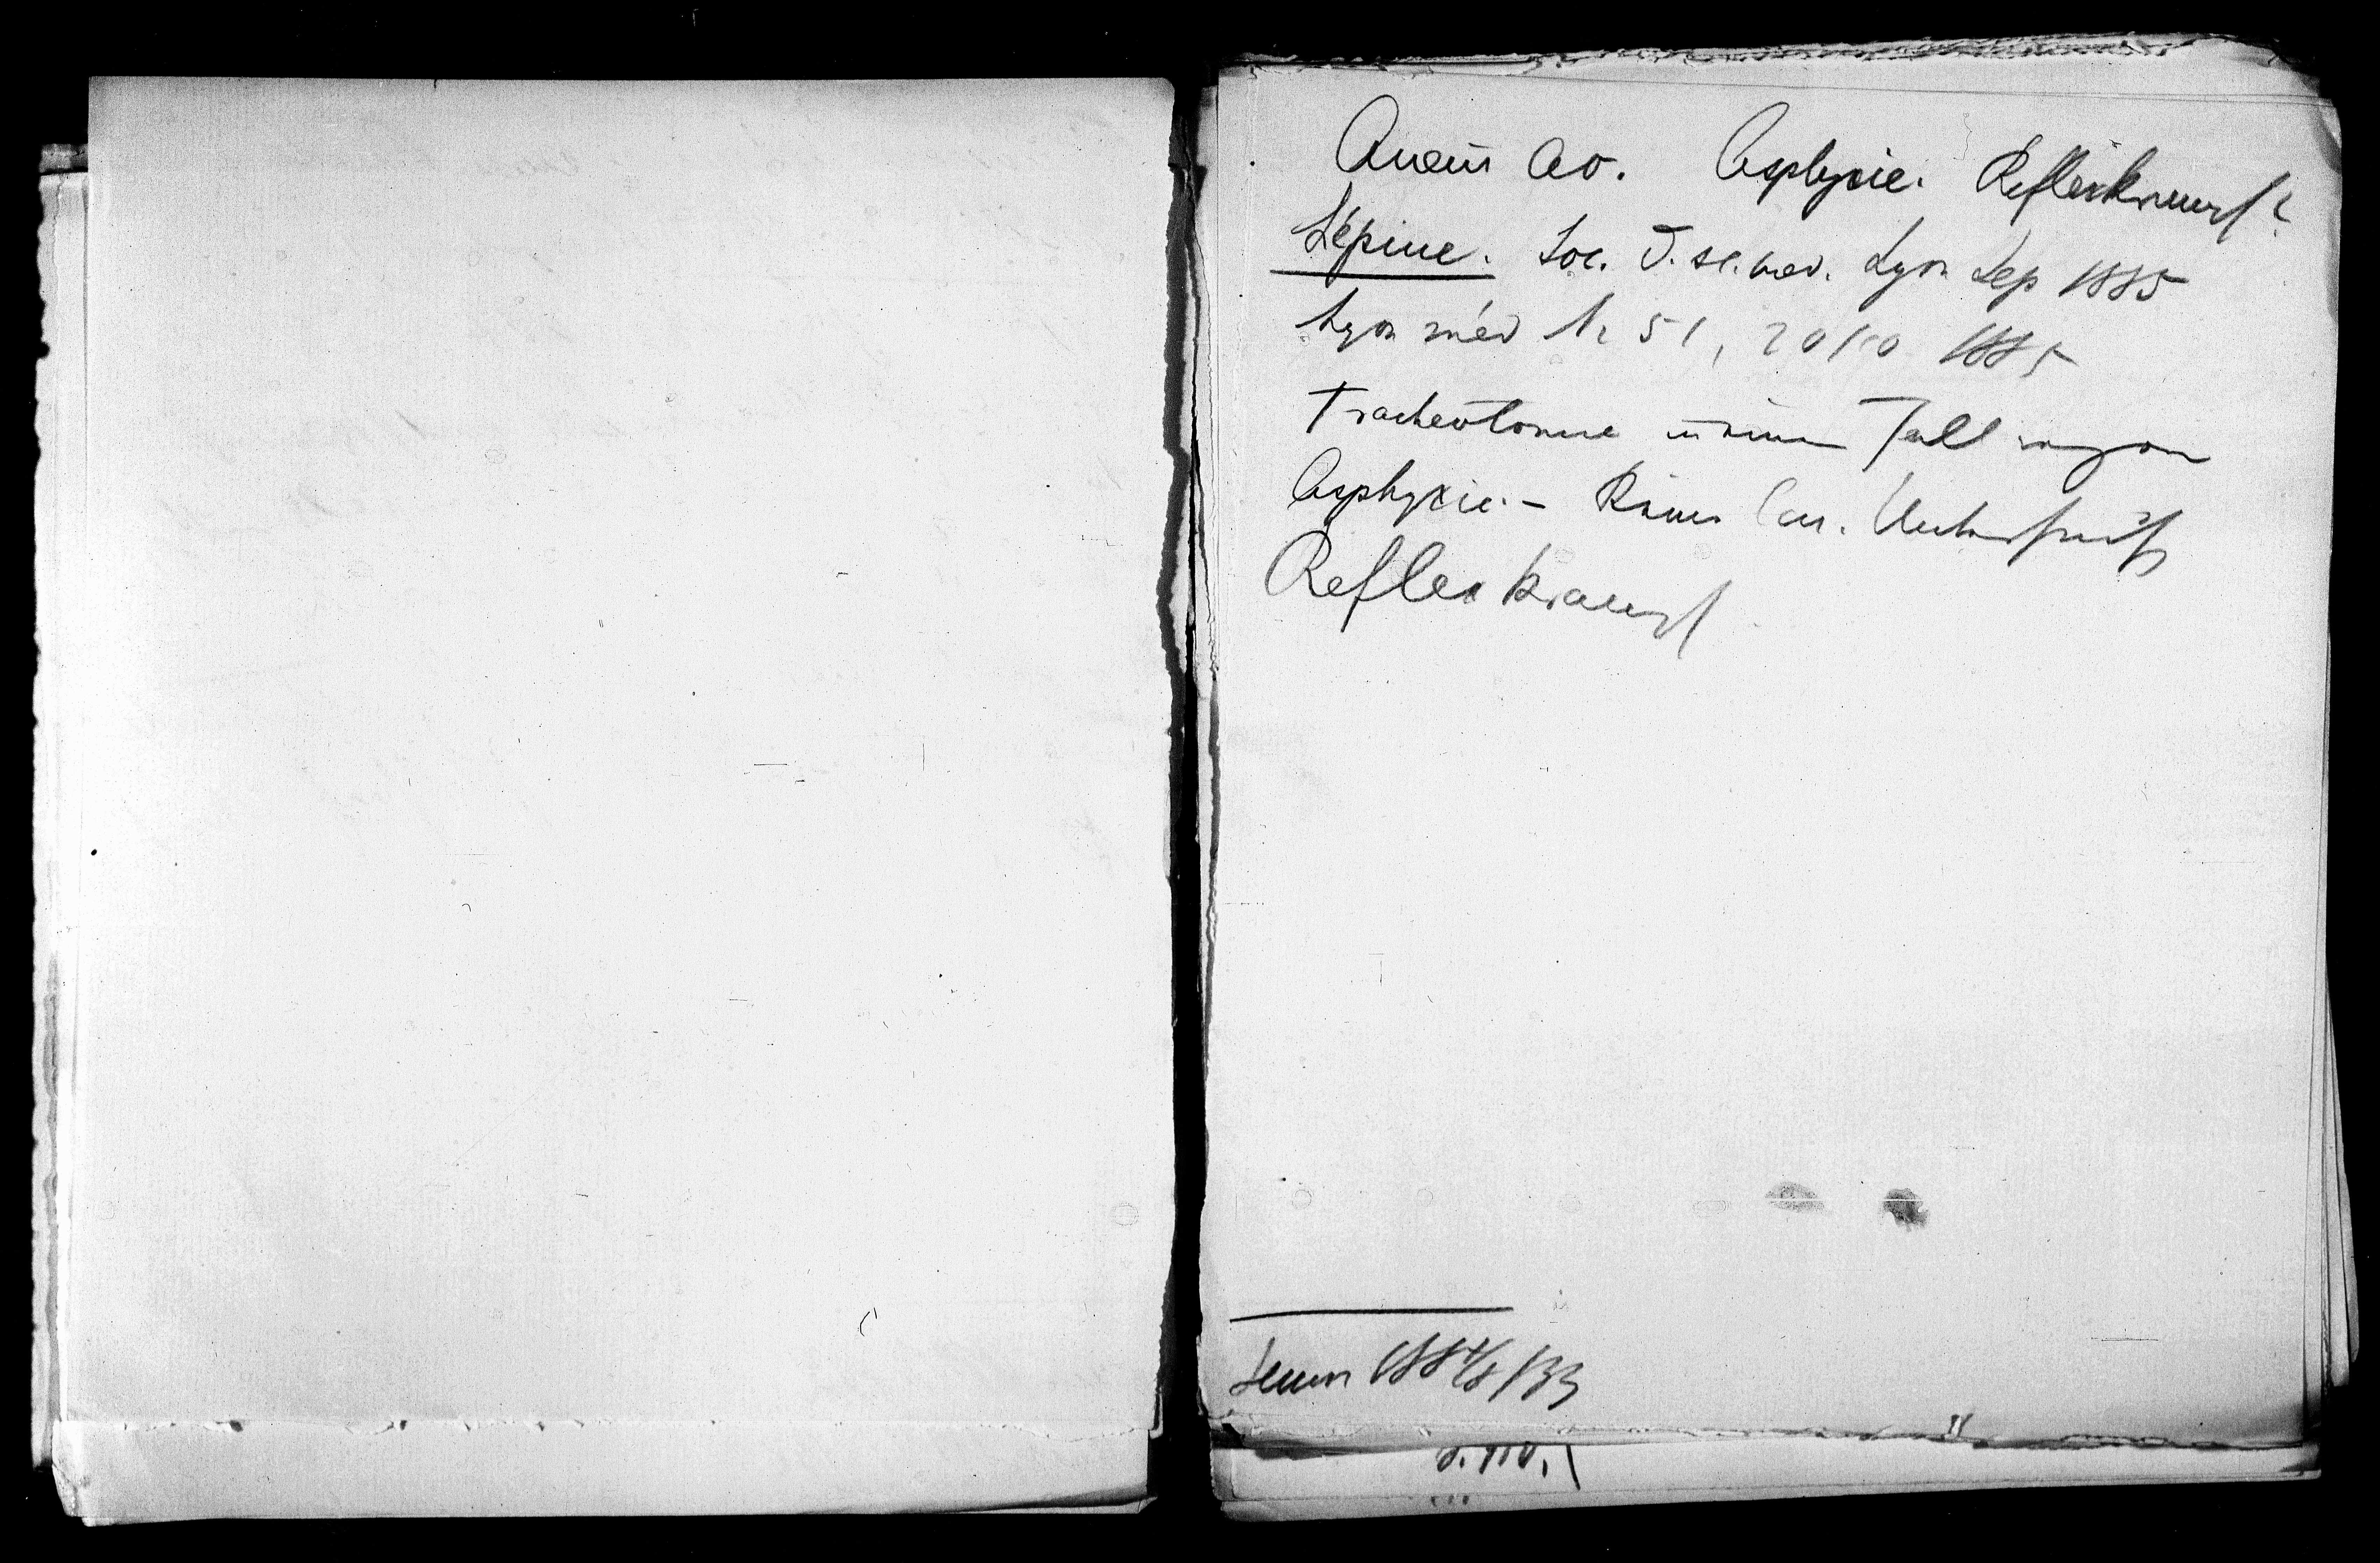 Aneur Ao. Asphyxie. Reflexkrampf?
Lépine. Soc. d. sc. med. Lyon Sep 1885
Lyon méd Nr 51, 20/10 1885
Tracheotomie in einem Fall wegen
Asphyxie. – Keine
Reflexkrampf
1884/8/133